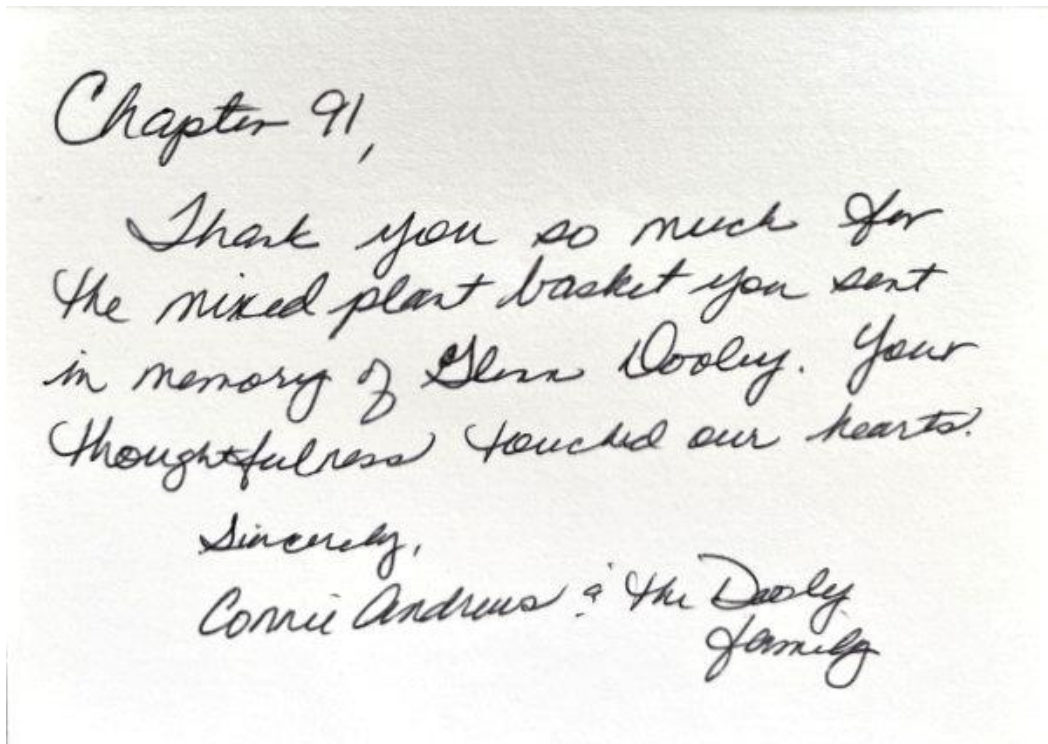 Chapter 91,
Thank you so much for
the mixed plant basket you sent
in memory of Glenn Dooley. Your
thoughtfulness touched our hearts.
Sincerely,
Connie Andrews & the Dooley
family